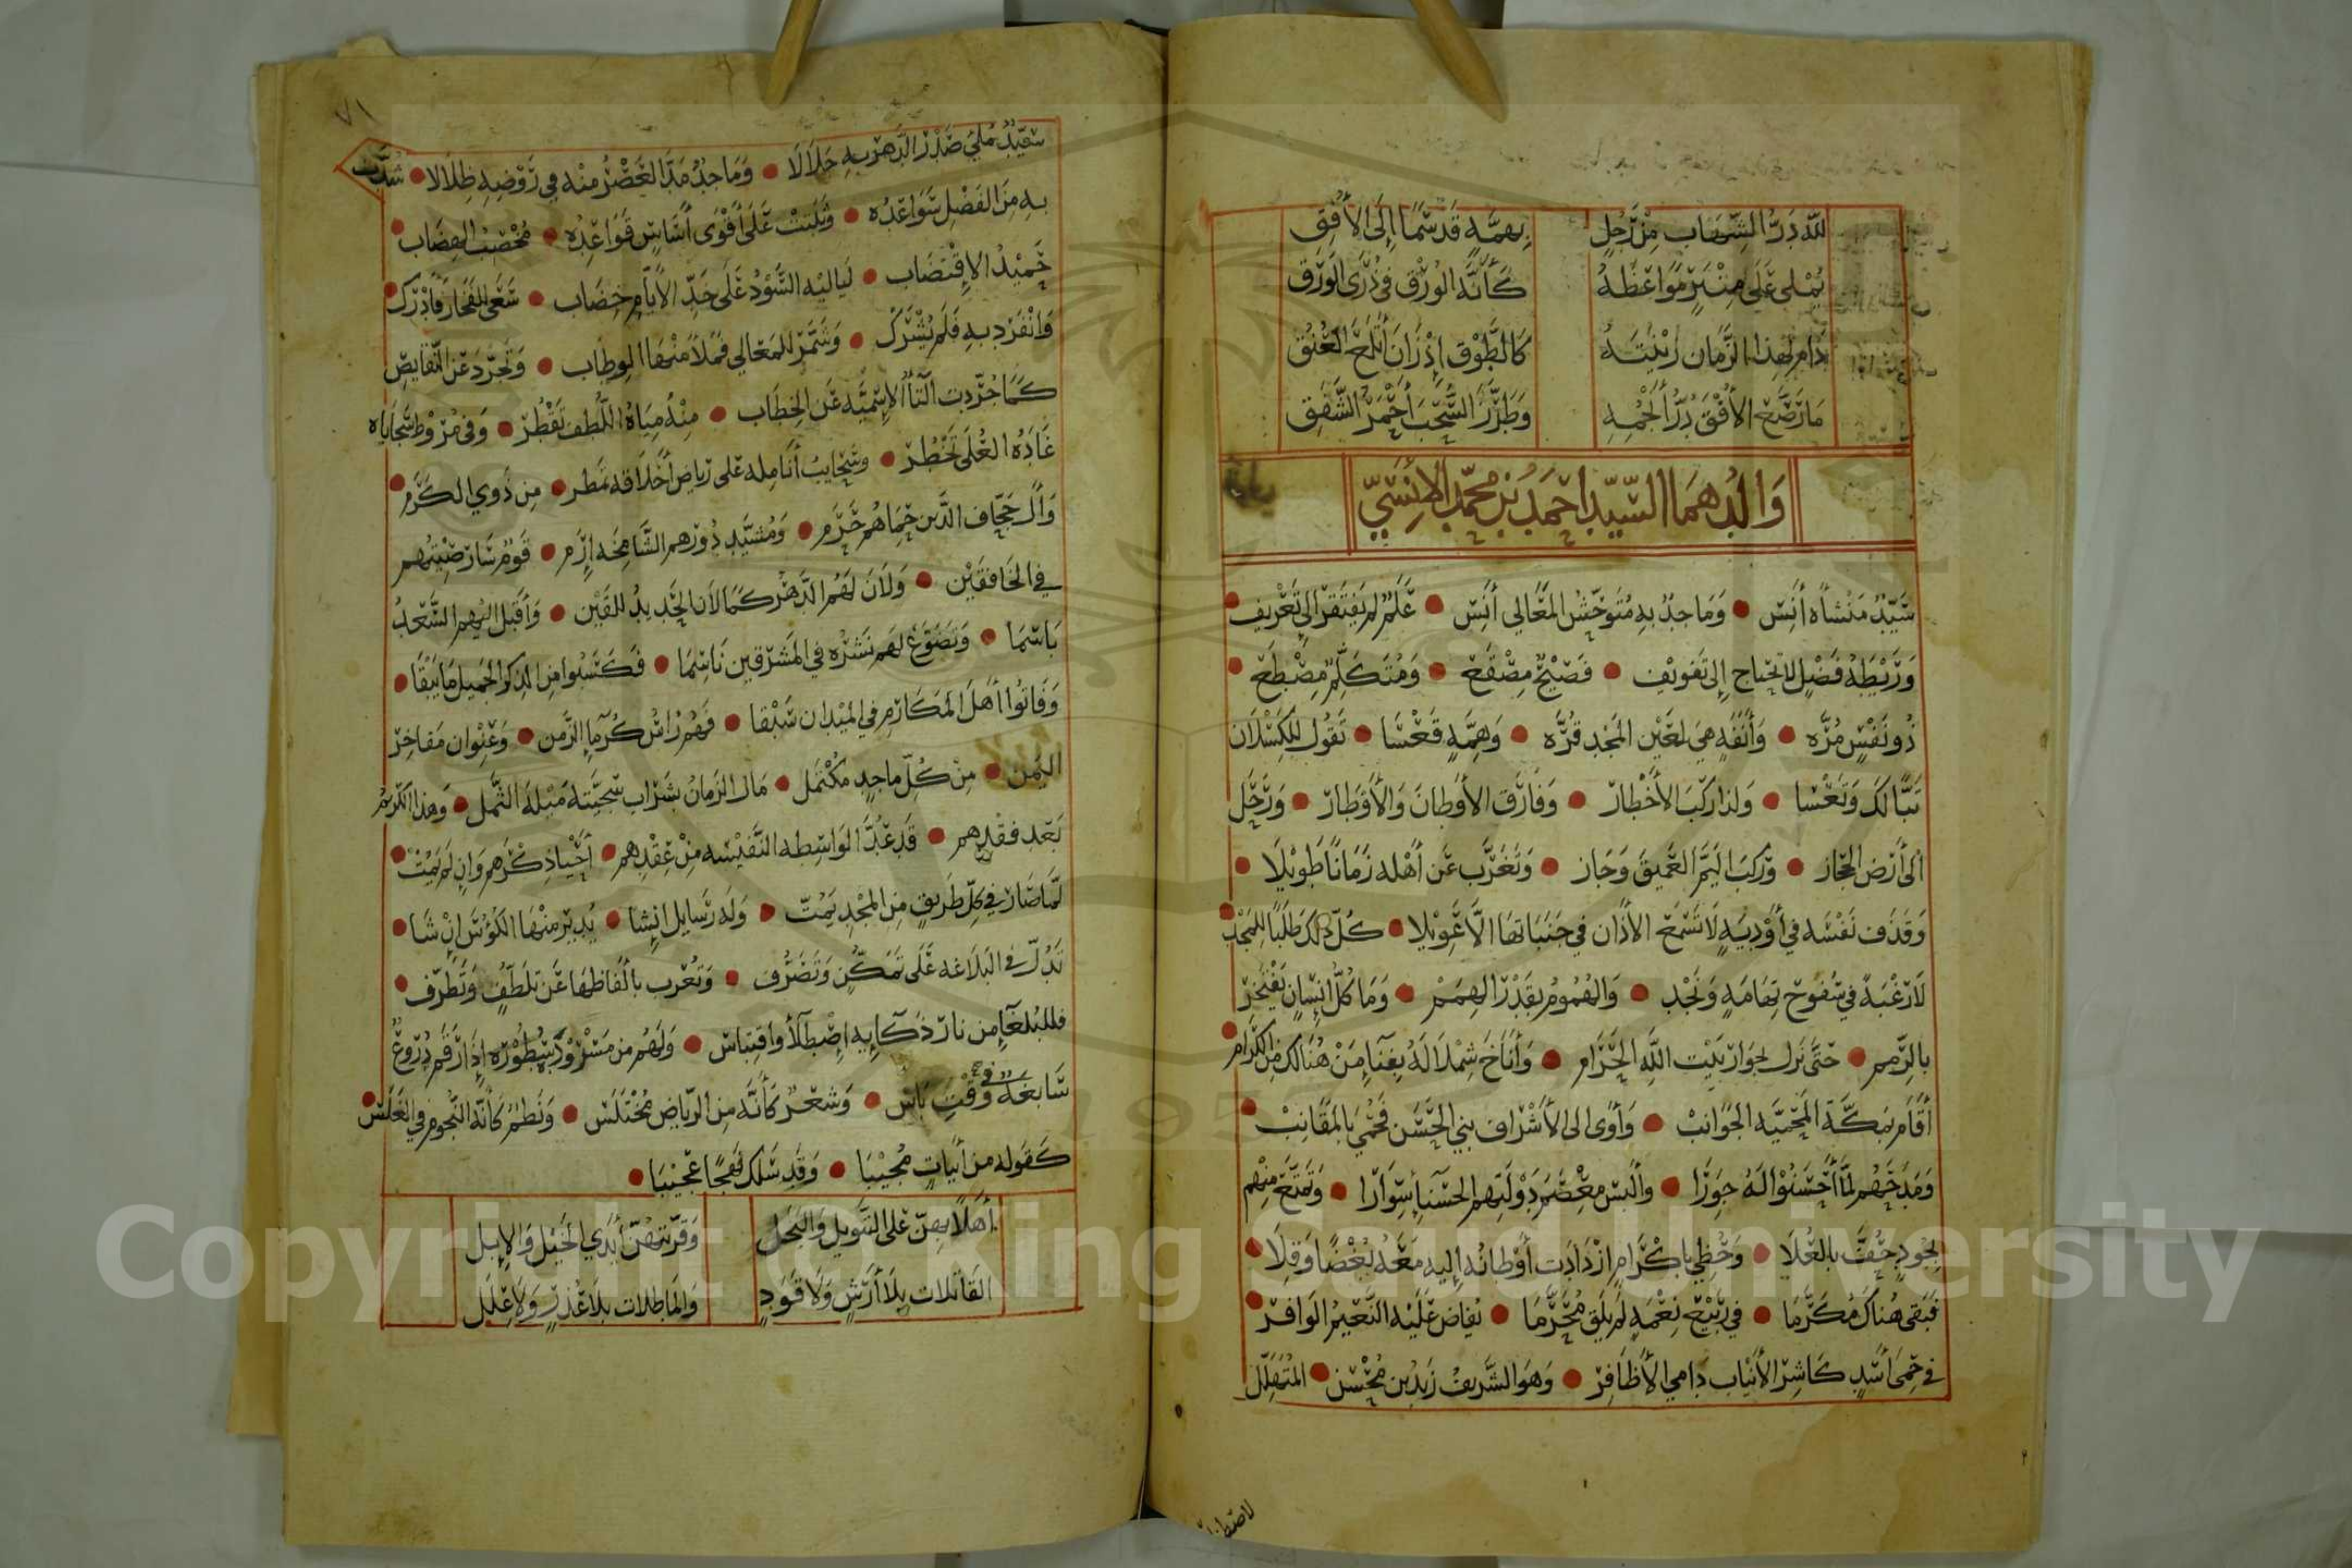 لله در الشهاب من رجل بهمة قد سما إلى الأفق
يملي على منبر مواعظه كأنه الورق في ذرى الورق
دام لهذا الزمان زينته كالطوق إذ زان أتلع العنق
ما رصع الأفق در أنجمه وطرز السحب أحمر الشفق
والدهما السيد احمد بن محمد الأنسي
سيد منشاه أنس • وماجد به متوحش المعالي أنس • علم لم يفتقر الى تعريف •
وريطة فضل لا تحتاج إلى تفويف • فصيح مصقع • ومتكلم مصطع •
ذو نفس مره • وأنفة هي لعين المجد قره • وهمة قعسا • تقول للكسلان
تبا لك وتعسا • ولذا ركب الأخطار • وفارق الأوطان والأوطار • ورحل
الى أرض الحجاز • وركب اليم العميق وجاز • وتغرب عن أهله زمانا طويلا •
وقذف نفسه في أودية لا تسمع الأذان في جنباتها الا عويلا • كل ذلك طلبا للمجد •
لا رغبة في سفوح تهامة ونجد • والهموم بقدر الهمم • وما كل انسان يفتخر
بالرمم • حتى نزل بجوار بيت الله الحرام • وأناخ شملا له بفناء من هنالك من الكرام •
أقام بمكة المحمية الجوانب • وأوى الى الأشراف بني الحسن فحمي بالمقانب •
ومدحهم لما أحسنوا له جورا • وألبس معصم دولتهم الحسناء سوارا • وتمتع منهم
بجود حف بالعلا • وحظي باكرام ازدادت أوطانه إليه معه بغضا وقلا •
فبقى هناك مكرما • في ربيع نعمة لم يلق محرما • يفاض عليه النعيم الوافر •
في حمى أسد كاشر الأنياب دامي الأظافر • وهو الشريف زيد بن محسن • المتهلل
٧١
سيد ملي صدر الدهر به جلالا • وماجد مد الغض منه في روضه ظلالا • شدت
به من الفضل سواعده • وثبتت على أقوى أساس قواعده • مخصب الهضاب •
حميد الإقتضاب • لياليه السود على خد الأيام خضاب • سعى للفخار فأدرك •
وانفرد به فلم يشرك • وشمر للمعالي فملأ منها الوطاب • وتجرد عن النقايص
كما جردت التاء الاسمية عن الخطاب • منه مياه اللطف تقطر • وفي مروط سجاياه
غاده العلى تخطر • وسحايب أنامله على رياض أخلاقه تمطر • من ذوي الكرم •
وآل حجاف الذين حماهم حرم • ومشيد دورهم الشامخة إرم • قوم سار صيتهم
في الخافقين • ولان لهم الدهر كما لان الحديد للقين • وأقبل اليهم السعد
باسما • وتضوع لهم نشره في المشرقين ناسما • فكسبوا من الذكر الجميل ما يبقا •
وفاتوا أهل المكارم في الميدان سبقا • فهم رأس كرماء الزمن • وعنوان مفاخر
اليمن • من كل ماجد مكتمل • مال الزمان بشراب سجيته ميلة الثمل • وهذا الكريم
بعد فقدهم • قد عد الواسطه النفيسه من عقدهم • أحيا ذكرهم وان لم يمت •
لما صار في كل طريق من المجد يمت • وله رسايل انشا • يدير منها الكؤس ان شا •
تدل في البلاغه على تمكن وتصرف • وتعرب بالفاظها عن تلطف وتطرف •
فللبلغاء من نار ذكايه اصطلا واقتباس • ولهم من مسرود سطوره إذا رقم دروع
سابغة في وقت باس • وشعر كأنه من الرياض مختلس • ونظم كأنه النجوم في الغلس •
كقوله من أبيات مجيبا • وقد سلك نهجا عجيبا •
أهلا بهن على التنويل والبخل وقربتهن أيدي الخيل والإبل
القاتلات بلا أرش ولا قود والماطلات بلا عذر ولا علل
Copyright © King Saud University